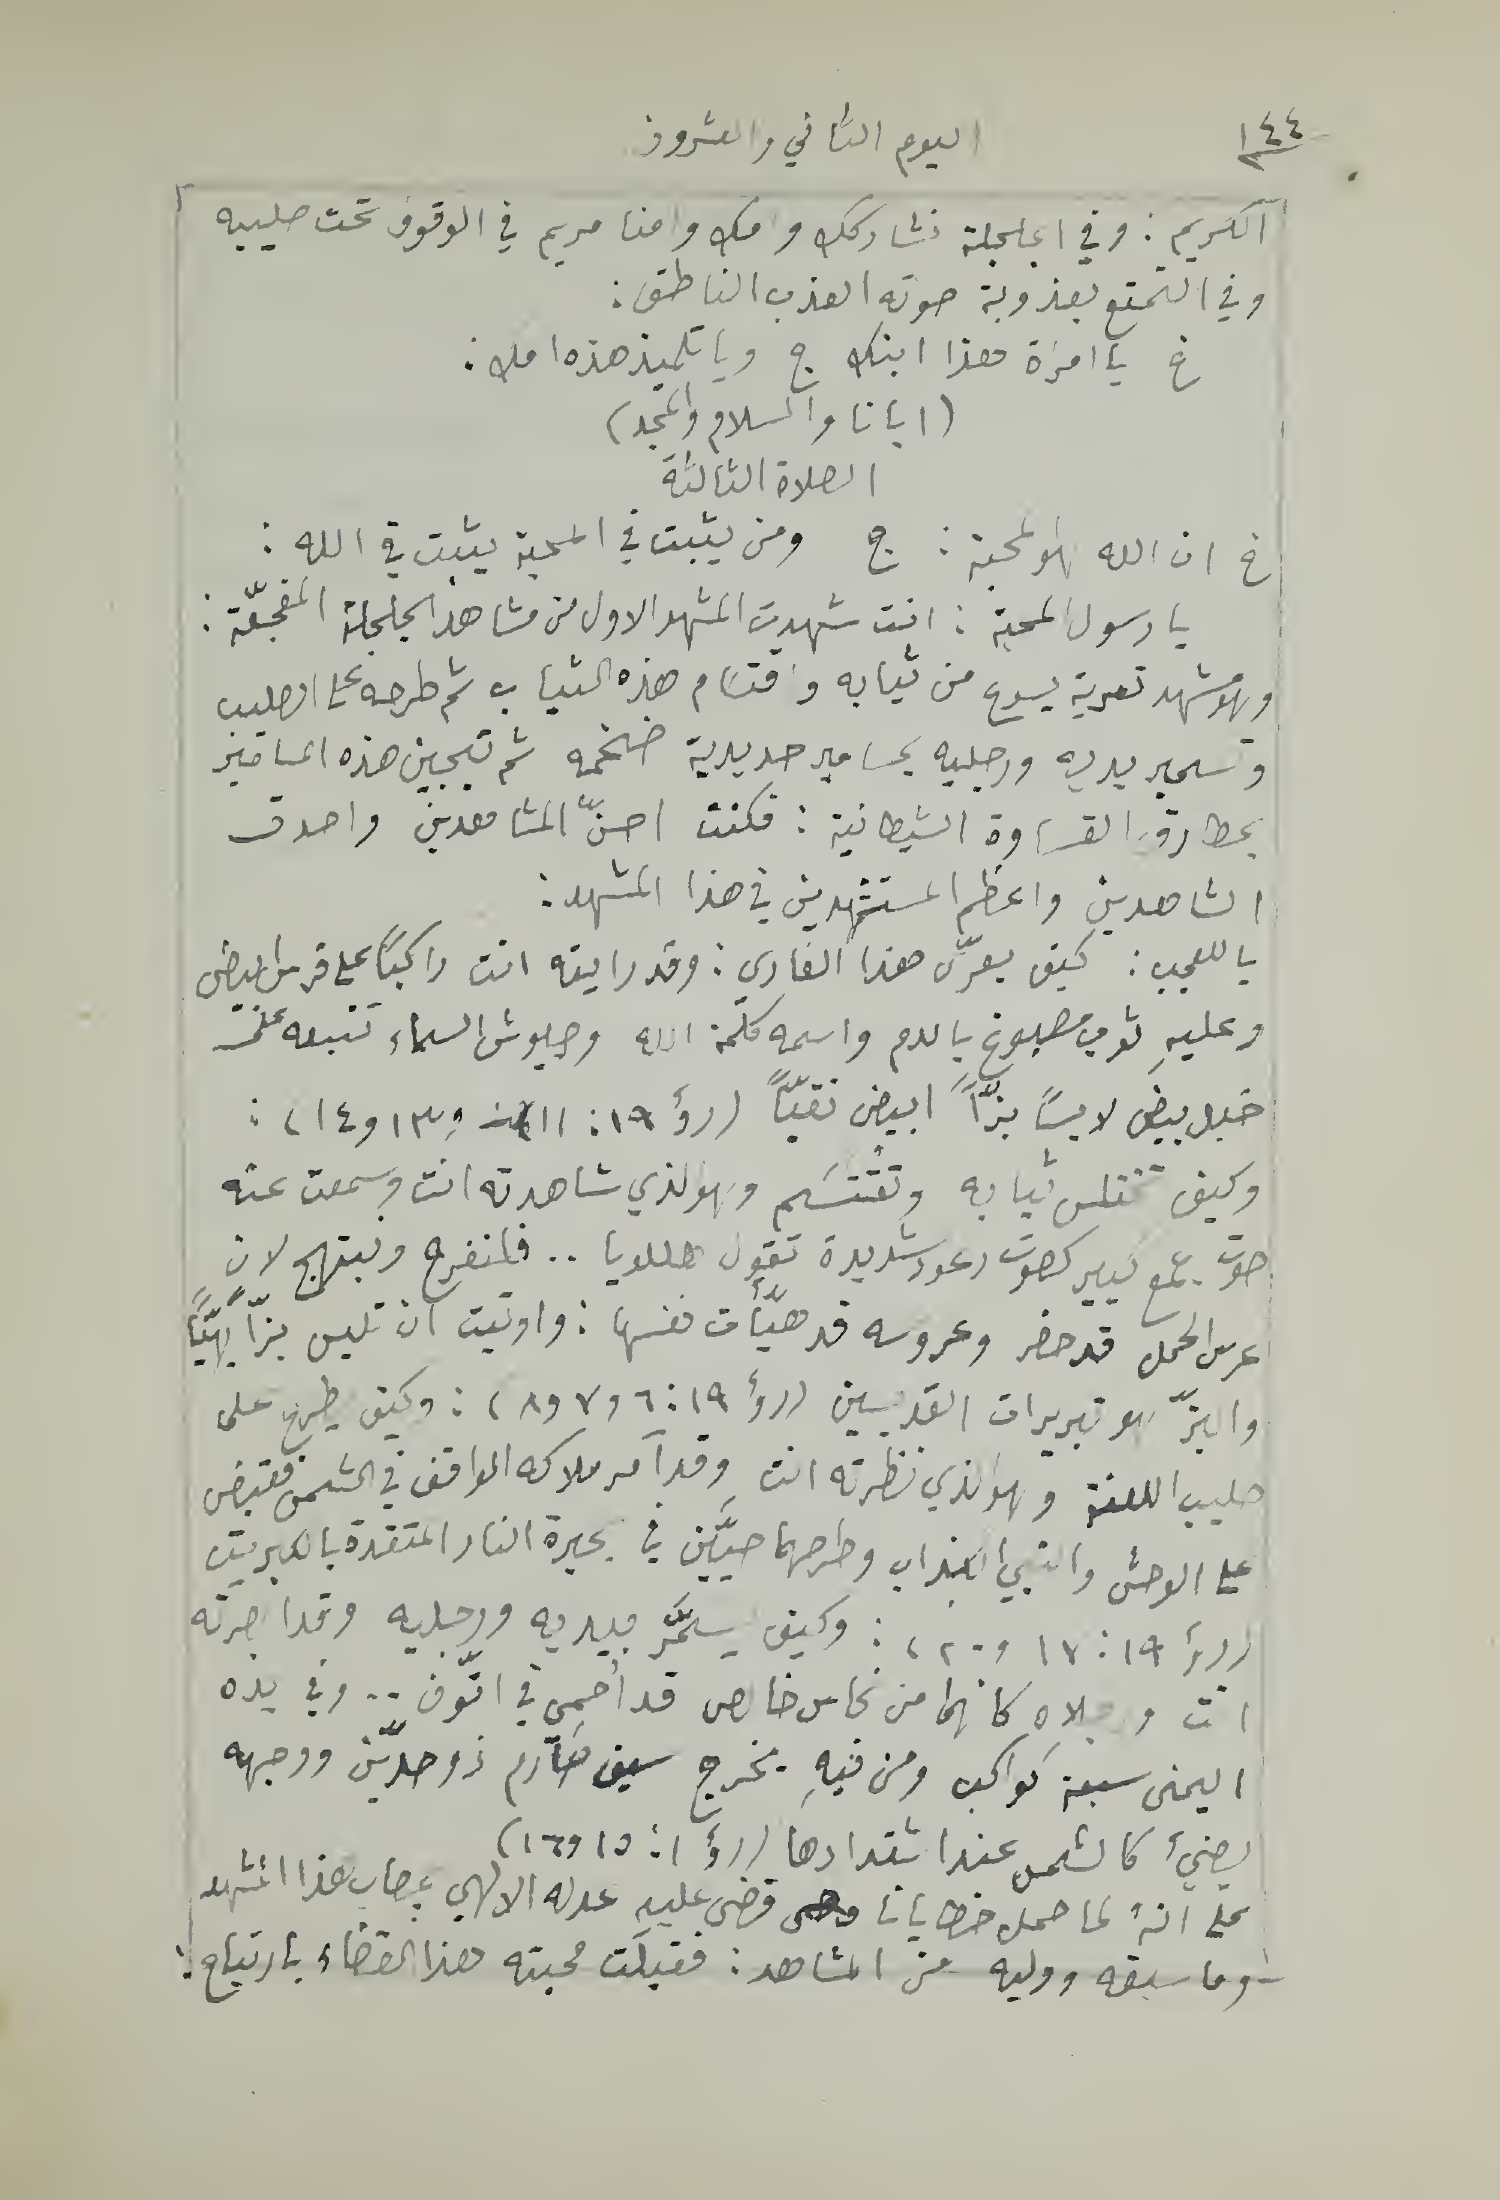 ١٤٤
اليوم الثاني والعشرون
الكريم : وفي الجلجلة نشاركك وامك وامنا مريم في الوقوف تحت صليبه
وفي التمتع بعذوبة صوته العذب الناطق :
خ يا امرأة هذا ابنك ج ويا تلميذ هذه امك :
(ابانا والسلام والمجد)
الصلاة الثالثة
خ ان الله هو المحبة : ج ومن يثبت في المحبة يثبت في الله :
يا رسول المحبة : انت شهدت المشهد الاول من مشاهد الجلجلة المفجعّة :
وهو مشهد تعرية يسوع من ثيابه واقتسام هذه الثياب ثم طرحه على الصليب
وتسمير يديه ورجليه بمسامير حديدية ضخمه ثم تبجين هذه المسامير
بمطارق القساوة الشيطانية : فكنت احنّ المشاهدين واصدق
الشاهدين واعظم المستشهدين في هذا المشهد :
يا للعجب : كيف يعرّى هذا الفادي : وقد رايته انت راكبًا على فرس ابيض
وعليهِ ثوب مصبوغ بالدم واسمه كلمة الله وجيوش السماء تتبعه على
خيل بيض لابسًا بزًّا ابيض نقيًّا (رؤ ١٩ : ١١ و ١٣ و ١٤) :
وكيف تختلس ثيابه وتُقتسَم وهو الذي شاهدته انت وسمعت عنه
صوت جمع كبير كصوت رعود شديدة تقول هللويا .. فلنفرح ونبتهج لان
عرس الحمل قد حضر وعروسه قد هيّأت نفسها : واوتيت ان تلبس بزًّا بهيًّا
والبزّ هو تبريرات القديسين (رؤ ١٩ : ٦ و ٧ و ٨) : وكيف يطرح على
صليب اللعنة وهو الذي نظرته انت وقد آمر ملاكه الواقف في الشمس فقبض
على الوحش والنبي الكذاب وطرحهما حيَّين في بحيرة النار المتقدة بالكبريت
(رؤ ١٩ : ١٧ و ٢٠) : وكيف يسمَّر بيديه ورجليه وقد ابصرته
انت ورجلاهِ كانهما من نحاس خالص قد أُحمي في اتّون .. وفي يده
اليمنى سبعة كواكب ومن فيهِ يخرج سيف صارم ذو حدّين ووجهه
يضيُ كالشمس عند اشتدادها (رؤ ١ : ١٥ و ١٦)
على انهُ لما حمل خطايانا قضى عليه عدله الالهي بمصاب هذا المشهد
وما سبقه ووليه من المشاهد : فقبلَت محبته هذا القضاء بارتياح :